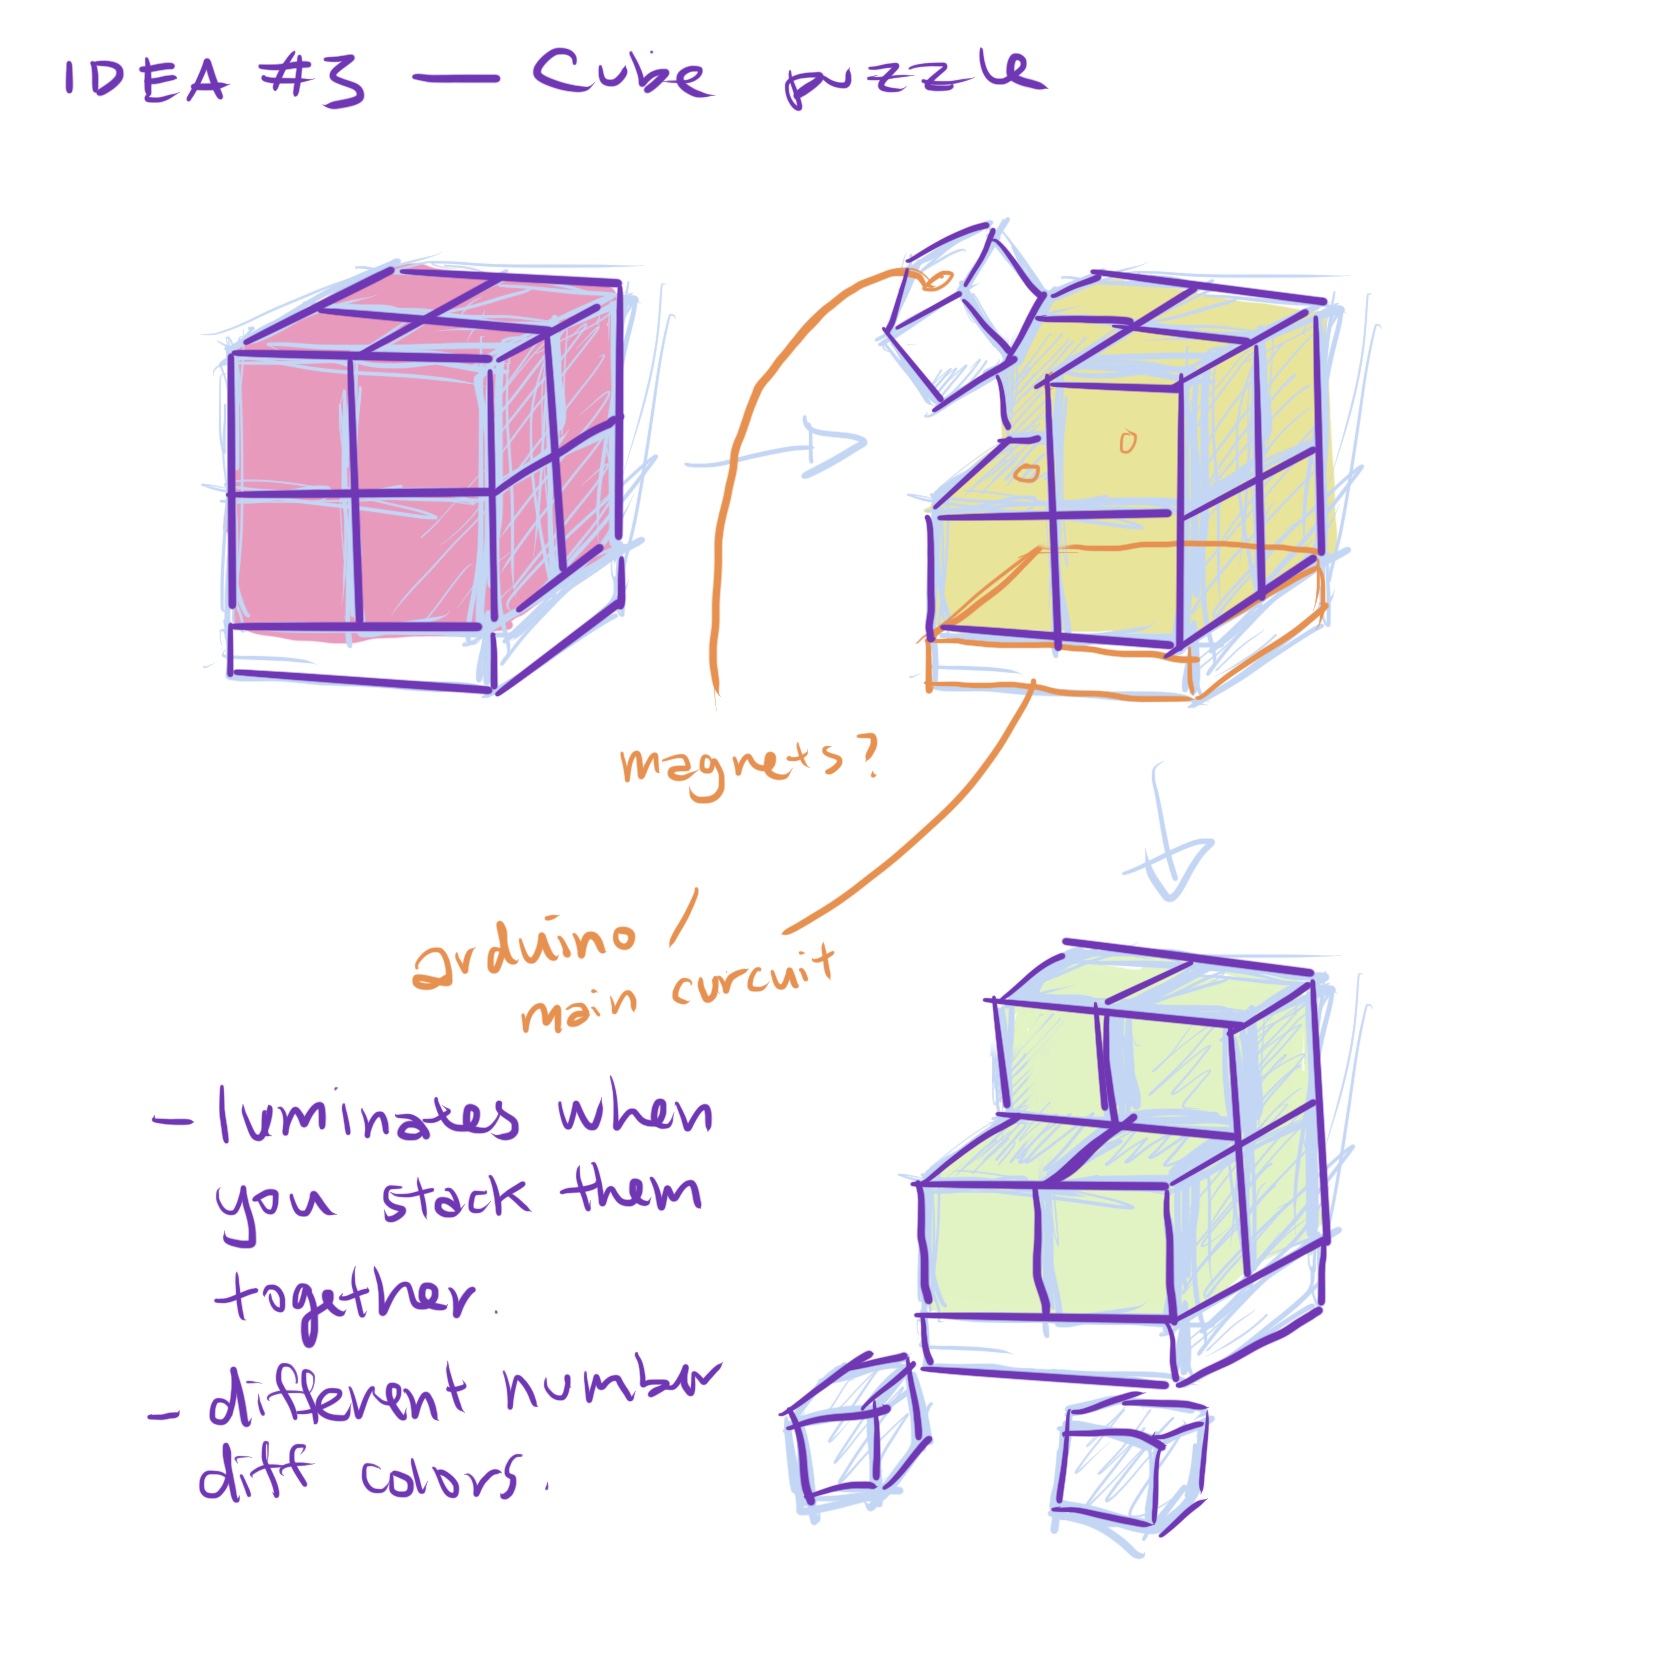 IDEA #3 — Cube puzzle
magnets?
arduino /
main curcuit
- luminates when
you stack them
together.
- different number
diff colors.